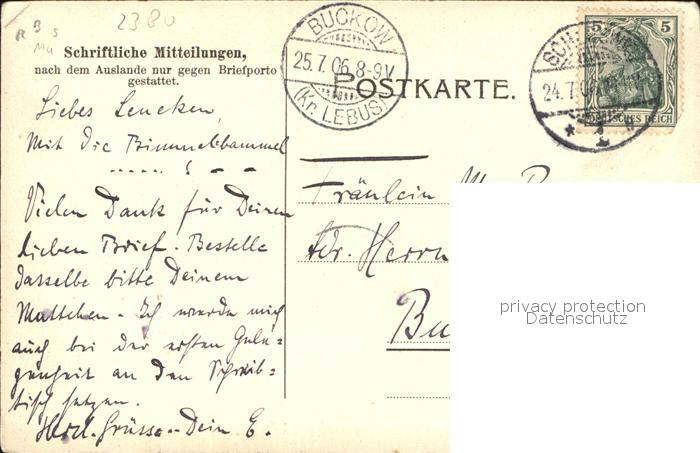 2380
R B S
Mu
Schriftliche Mitteilungen,
nach dem Auslande nur gegen Briefporto
gestattet.
BUCKOW
25.7.06.8-9V.
(Kr. LEBUS)
POSTKARTE.
24.7.06
5 5
DEUTSCHES REICH
Liebes Lencken,
Mit die Bimmelbammel
Vielen Dank für Deinen
lieben Brief. Bestelle
dasselbe bitte Deinem
Muttchen. Ich werde mich
auch bei der ersten Gele=
genheit an den Schreib=
tisch setzen.
Herzl. Grüsse Dein E.
Fräulein
Adr. Herrn
Bu
privacy protection
Datenschutz